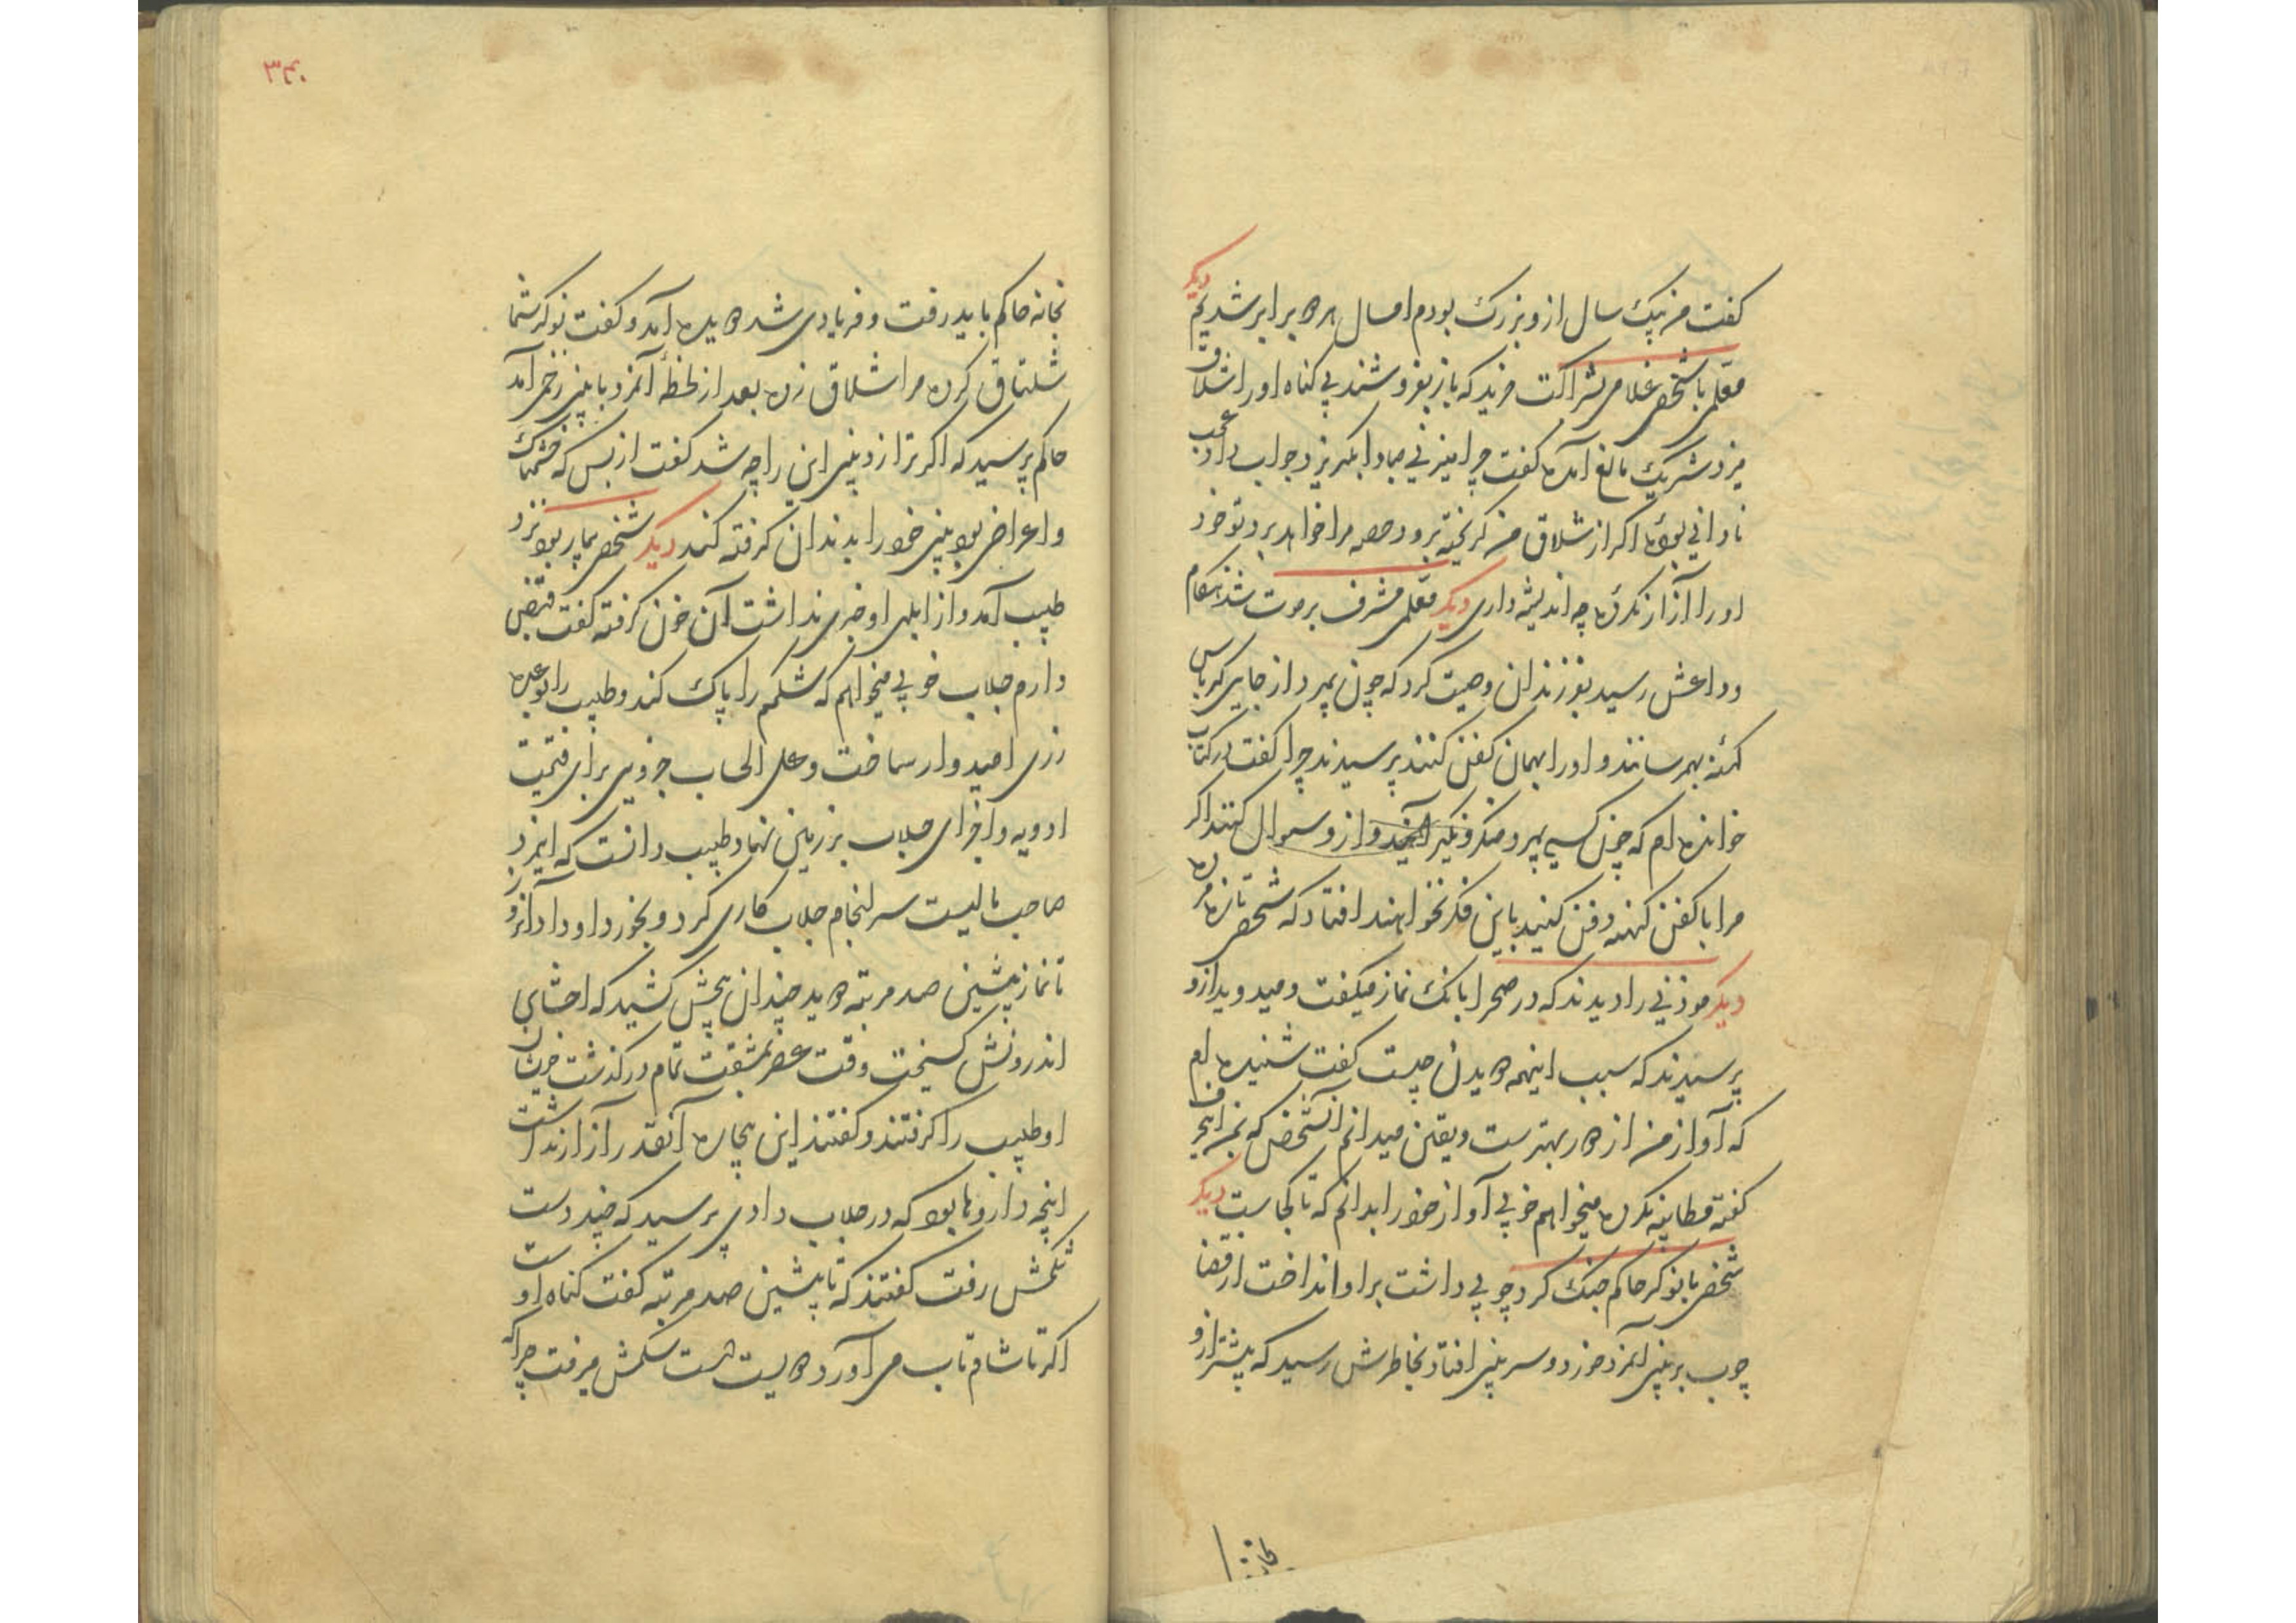 کفت من یک سال ازو بزرک بودم امسال هر دو برابر شدیم دیکر
معلمی با شخصی غلامی بشراکت خرید که باز بفروشند بی کناه او را شلاق
میزد شریک مانع آمده کفت چرا میزنی مبادا بکریزد جواب داد عجب
نادانی بوده اکر از شلاق من کریخته برود حصه مرا خواهد برد تو خود
او را آزار نکرده چه اندیشه داری دیکر معلمی مشرف بر موت شد هنکام
وداعش رسید بفرزندان وصیت کرد که چون بمیرد از جایی کرباس
کهنه بهم رسانند و او را بهمان کفن کنند پرسیدند چرا کفت در کتاب
خوانده ام که چون کسی بمیرد منکر و نکیر آیند و ازو سوال کنند اکر
مرا با کفن کهنه دفن کنید باین فکر نخواهند افتاد که شخصی تازه مرده
دیکر موذنی را دیدند که در صحرا بانک نماز میکفت و میدوید ازو
پرسیدند که سبب اینهمه دویدن چیست کفت شنیده ام
که آواز من از دور بهترست و یقین میدانم آنشخص که بمن این حرف
کفته خطا نکرده میخواهم خوبی آواز خود را بدانم که تا کجاست دیکر
شخصی با نوکر حاکم جنک کرد چوبی داشت بر او انداخت از قضا
چوب بر بینی آنمرد خورد و سر بینی افتاد بخاطرش رسید که پیشتر ازو
بخانه
۳۴۰
بخانه حاکم باید رفت و فریادی شد دویده آمد و کفت نوکر شما
شلتاق کرده مرا شلاق زده بعد از لحظهٔ آنمرد با بینی زخمی آمد
حاکم پرسید که اکر ترا زد بینی این را چه شد کفت از بس که خشمناک
و اعراضی بود بینی خود را بدندان کرفته کند دیکر شخصی بیمار بود نزد
طبیب آمد و از ابلهی او خبری نداشت آن خون کرفته کفت قبضی
دارم جلاب خوبی میخواهم که شکمم را پاک کند و طبیب را بوعده
زری امیدوار ساخت و علی الحساب جزوی برای قیمت
ادویه و اجزای جلاب بر زمین نهاد طبیب دانست که اینمرد
صاحب مالیست سرانجام جلاب کاری کرد و بخورد او داد از روز
تا نماز پیشین صد مرتبه دوید چندان پیچش کشید که احشای
اندرونش کسیخت وقت عصر بمشقت تمام درکذشت خویشان
او طبیب را کرفتند و کفتند این بیچاره آنقدر آزار نداشت
اینچه داروها بود که در جلاب دادی پرسید که چند دست
شکمش رفت کفتند که تا پیشین صد مرتبه کفت کناه اوست
اکر تا شام تاب می آورد دویست دست شکمش میرفت چرا که